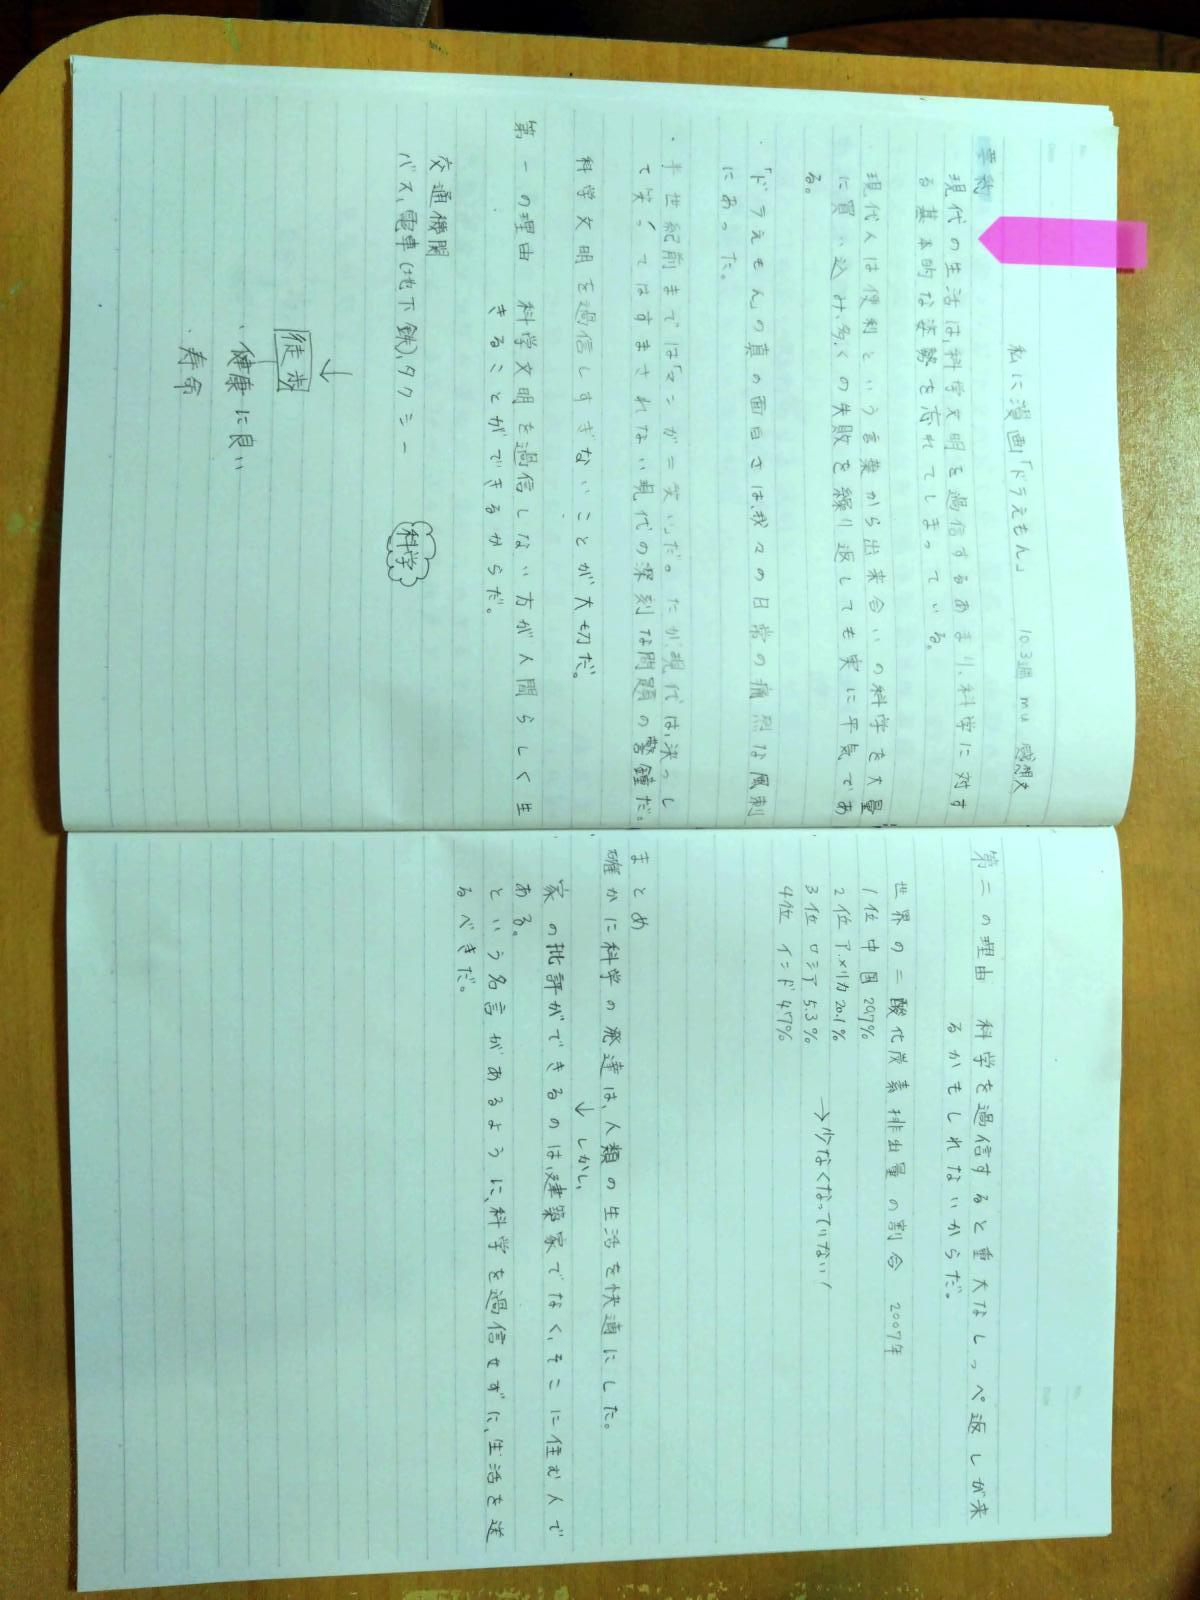 私に漫画「ドラえもん」 10.3週 mu 感想文
要約
現代の生活は、科学文明を過信するあまり、科学に対す
る基本的な姿勢を忘れてしまっている。
現代人は便利という言葉から出来合いの科学を大量
に買い込み、多くの失敗を繰り返しても実に平気であ
る。
・「ドラえもん」の真の面白さは、我々の日常の痛烈な風刺
にあった。
・半世紀前までは「マンガ=笑い」だ。だが、現代は、決っし
て笑ってはすまされない現代の深刻な問題の警鐘だ。
科学文明を過信しすぎないことが大切だ。
第一の理由 科学文明を過信しない方が人間らしく生
きることができるからだ。
交通機関
バス、電車(地下鉄)、タクシー
科学
↓
徒歩
・健康に良い
・寿命
第二の理由 科学を過信すると重大なしっぺ返しが来
るかもしれないからだ。
世界の二酸化炭素排出量の割合 2007年
1位 中国 20.7%
2位 アメリカ 20.1%
3位 ロシア 5.3%
→少なくなっていない!
4位 インド 4.7%
まとめ
確かに科学の発達は、人類の生活を快適にした。
↓しかし、
家の批評ができるのは、建築家でなく、そこに住む人で
ある。
という名言があるように、科学を過信せずに、生活を送
るべきだ。